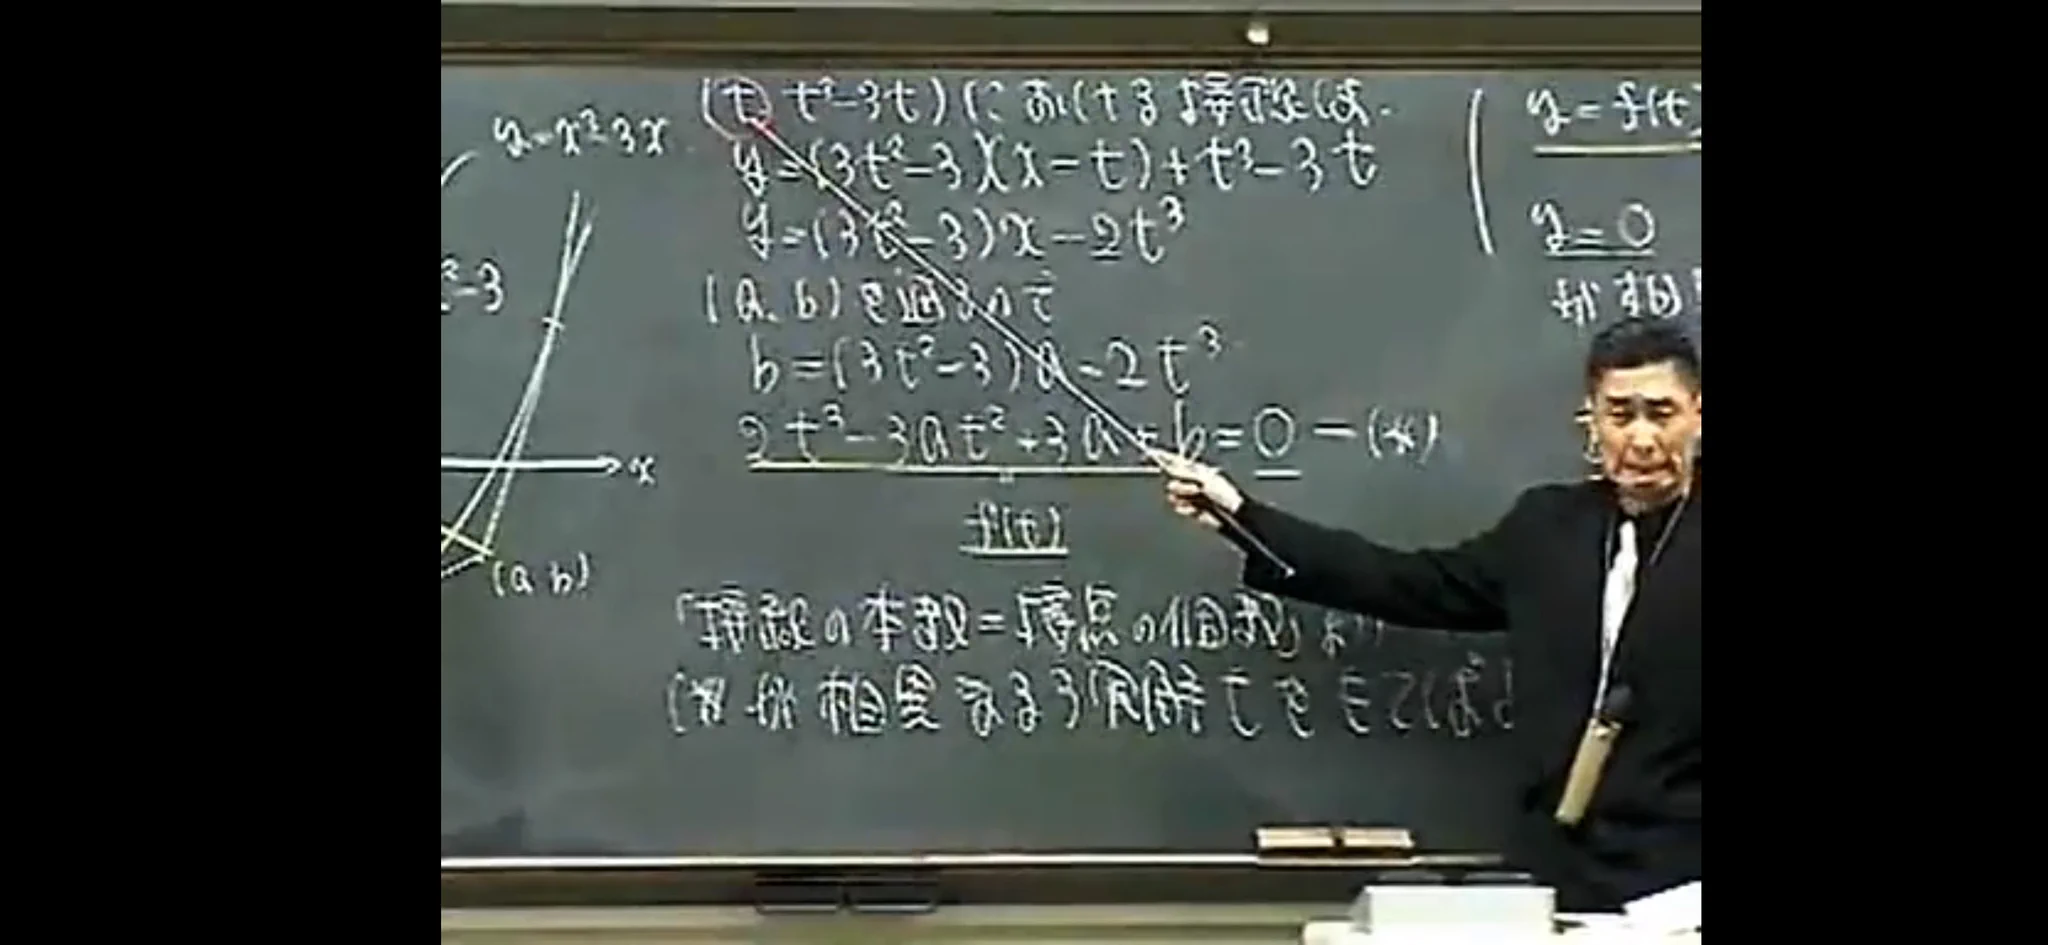 y=x³-3x
²-3
x
(a,b)
(t, t³-3t)における接線は.
y=(3t²-3)(x-t)+t³-3t
y=(3t²-3)x-2t³
(a,b)を通るので
b=(3t²-3)a-2t³
2t³-3at²+3a+b=0 —(*)
f(t)
「接線の本数=接点の個数」より
(*)が相異なる3実解
y=f(t)
y=0
が